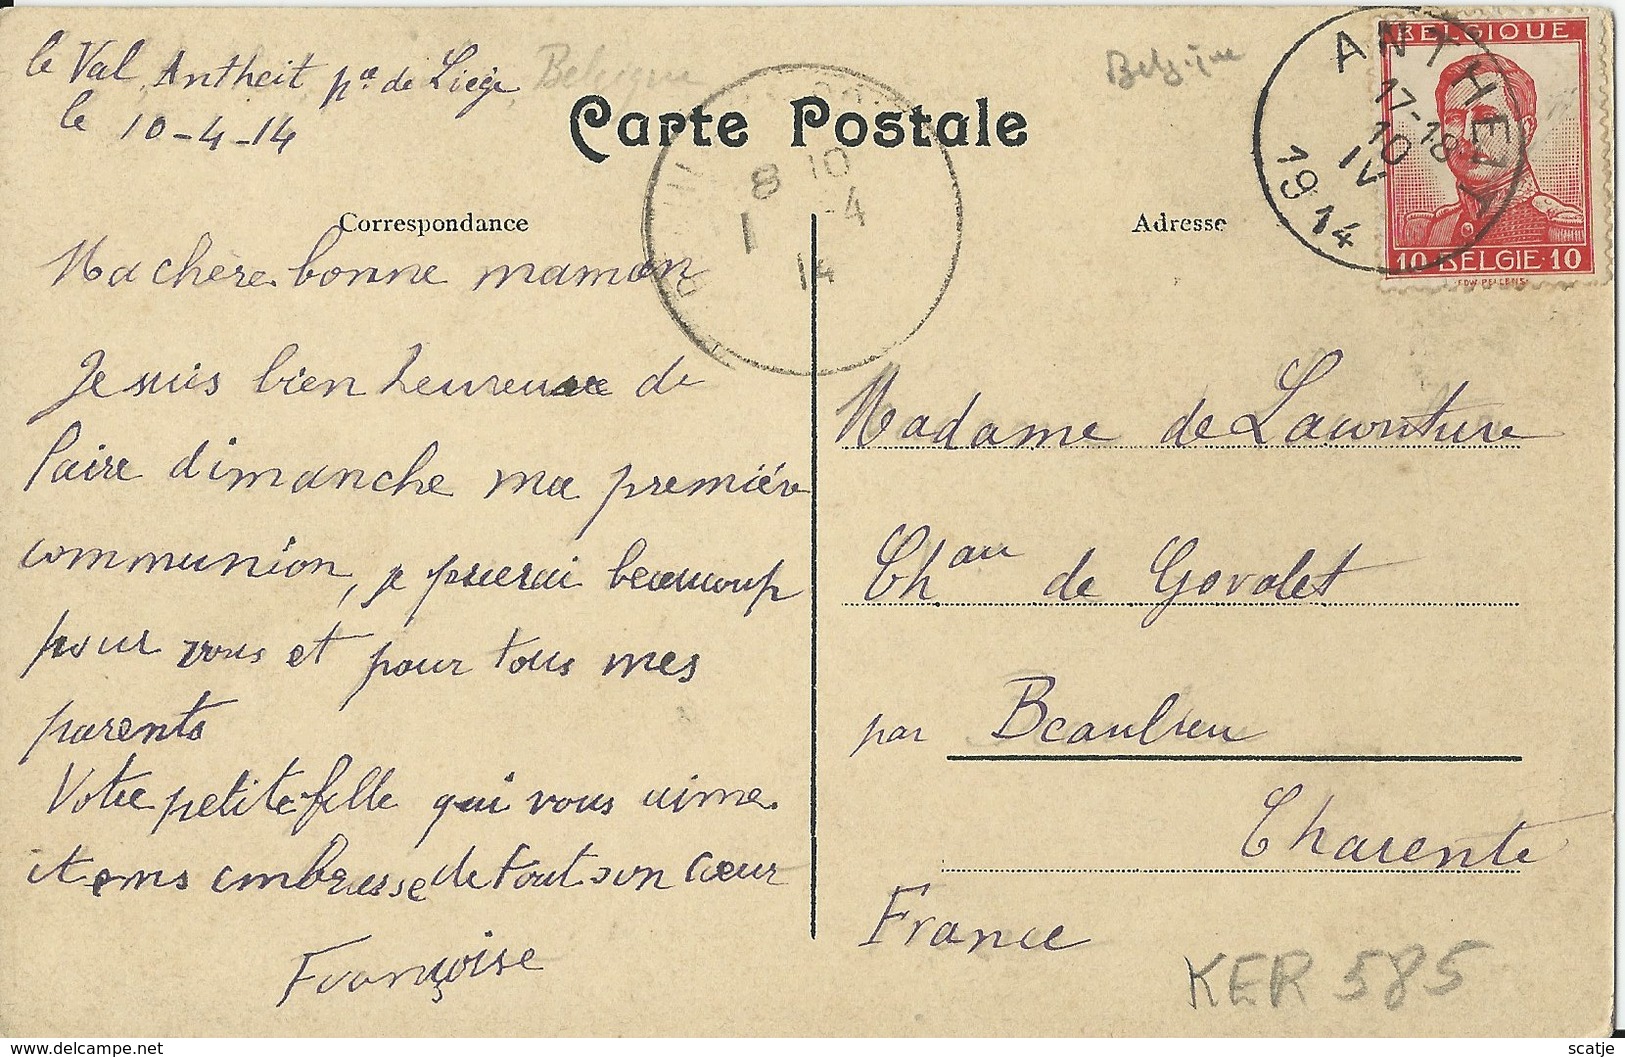 le Val, Antheit pce de Liège, Belgique
le 10-4-14
Belgique
Carte Postale
Correspondance
Adresse
ANTHEIT
17-18
10
IV
1914
BELGIQUE
10 BELGIE 10
EDW. PELLENS
8 10
1 -4
14
Ma chère bonne maman
Je suis bien heureuse de
faire dimanche ma première
communion, je prierai beaucoup
pour vous et pour tous mes
parents
Votre petite fille qui vous aime
et vous embrasse de tout son cœur
Françoise
Madame de Lacouture
Chau de Govalet
par Beaulieu
Charente
France
KER 585
https://www.delcampe.net
scatje